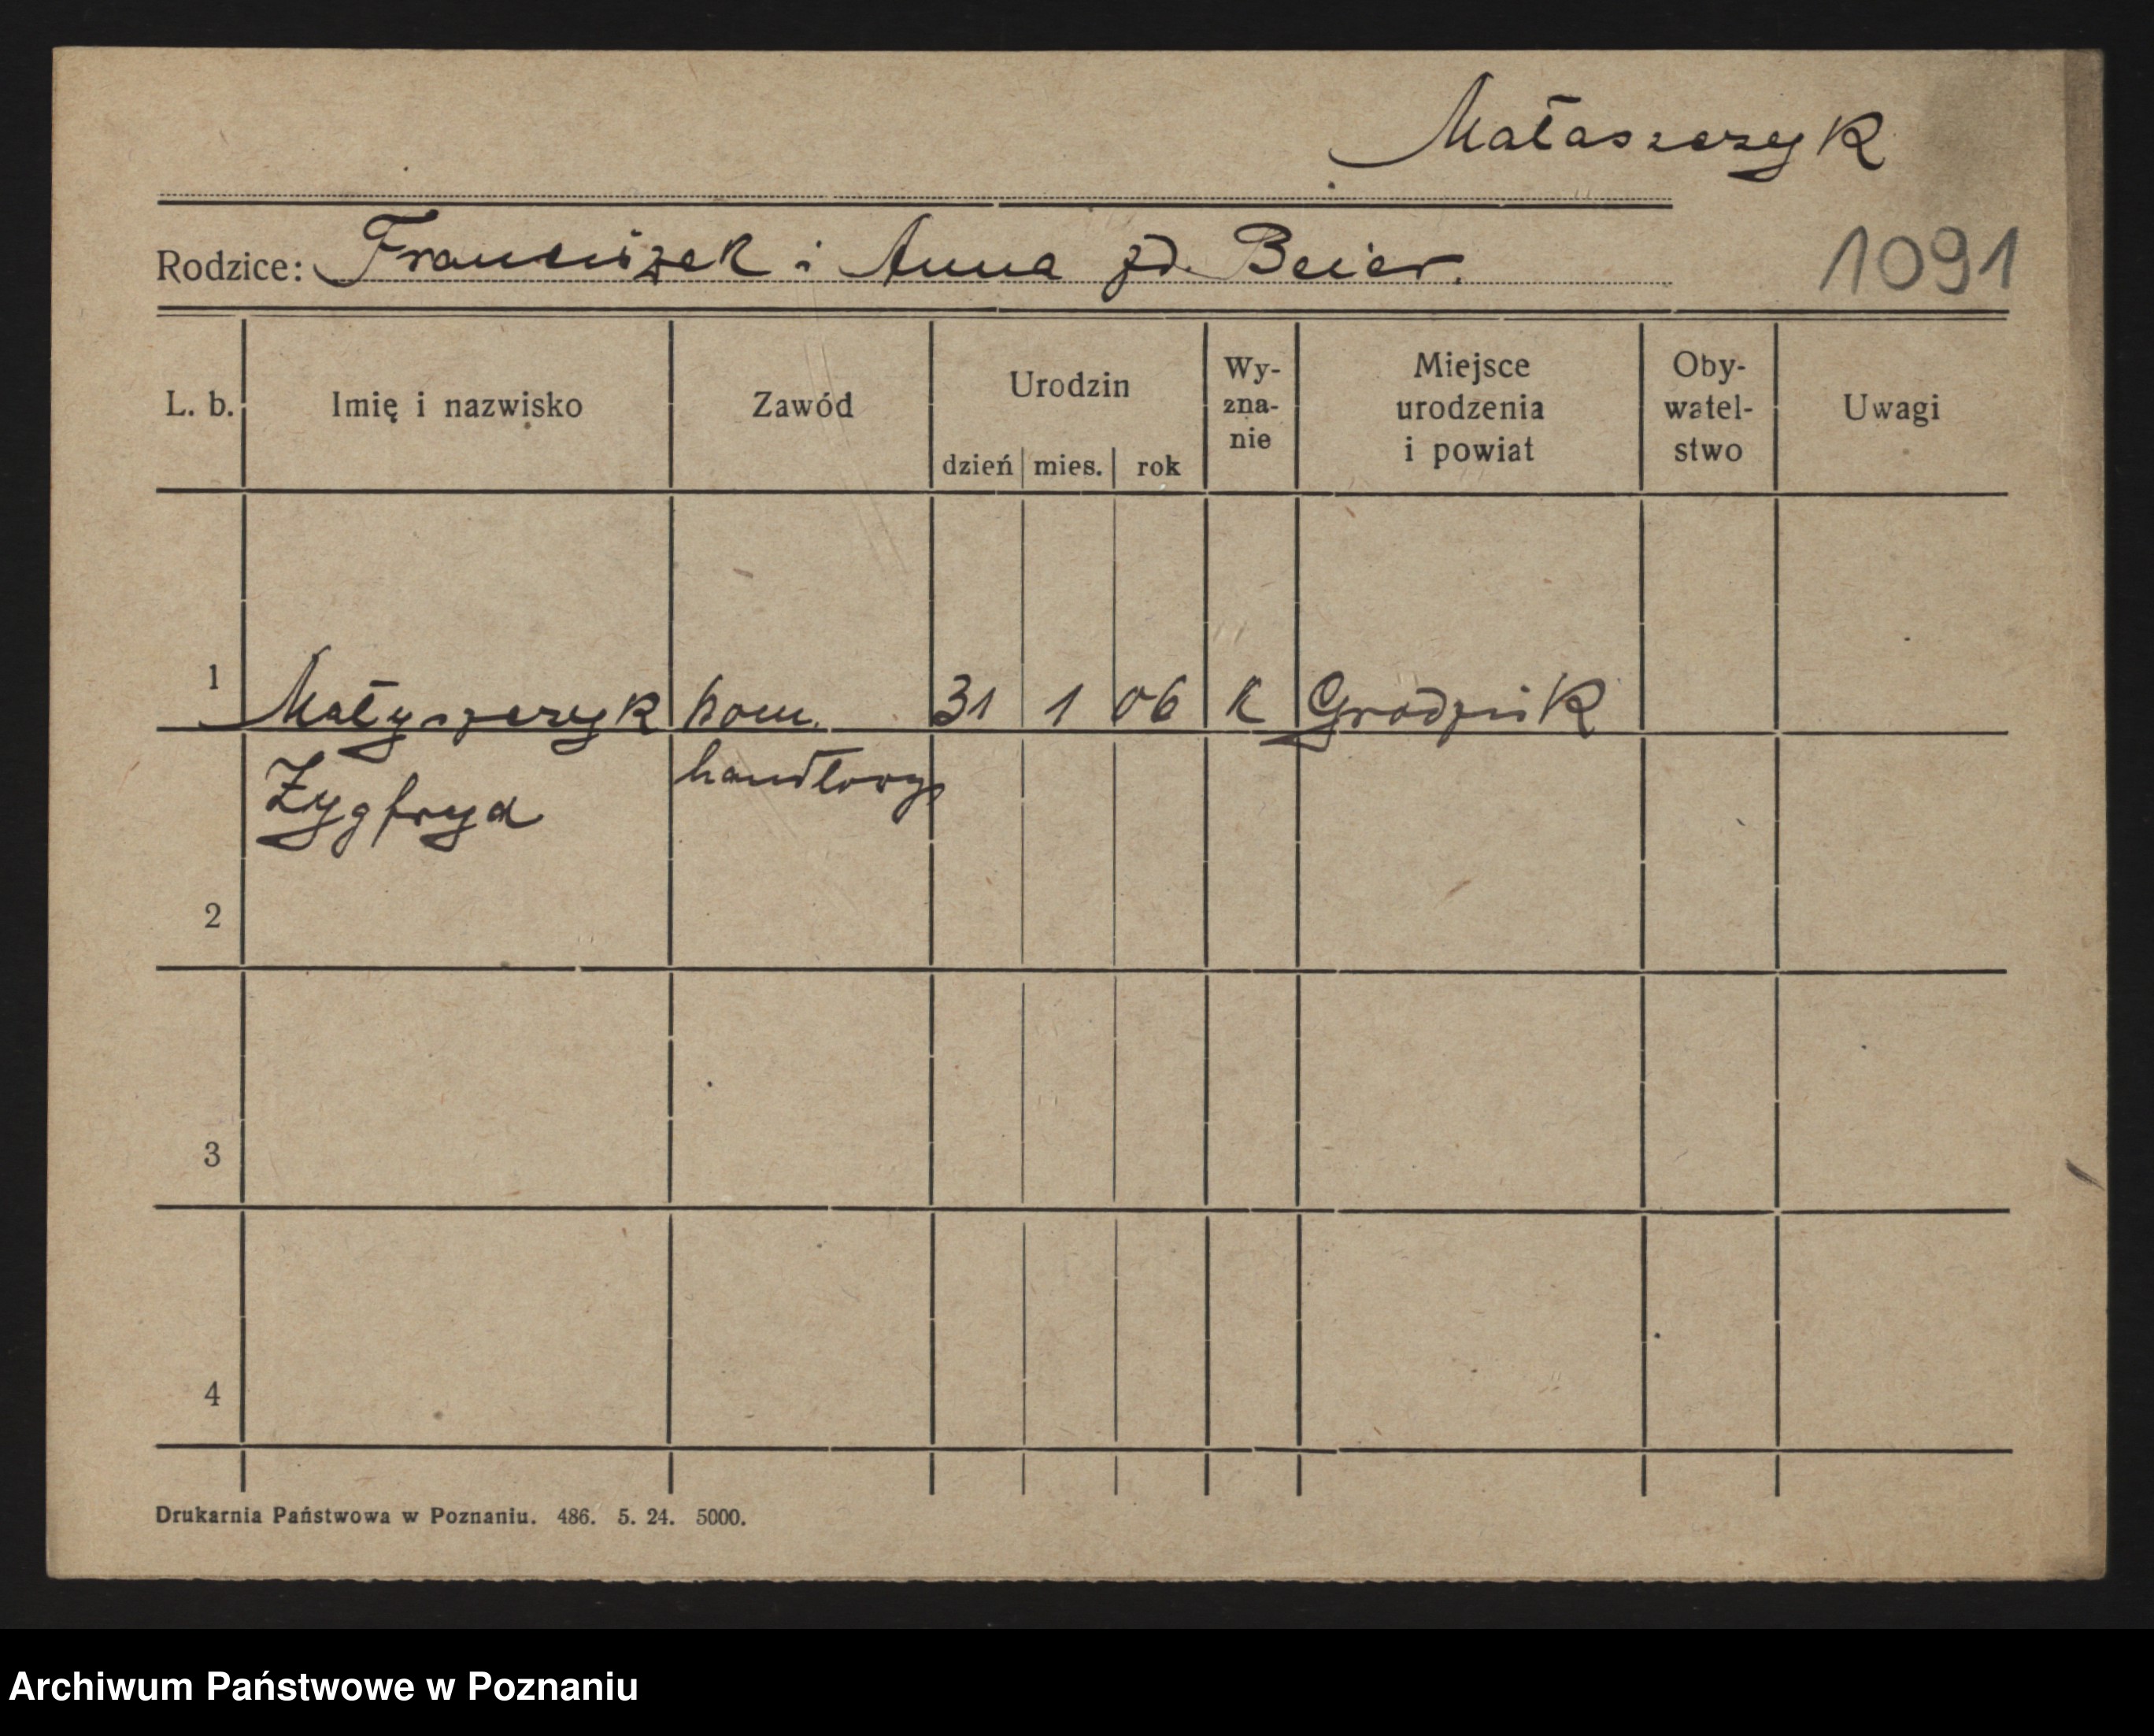 Małaszczyk
Rodzice: Franciszek i Anna zd. Beier.
1091
L. b. Imię i nazwisko Zawód Urodzin dzień mies. rok Wy-zna-nie Miejsce urodzenia i powiat Oby-watel-stwo Uwagi
1 Małyszczyk pom. 31 1 06 K Grodzisk
Zygfryd handlowy
2
3
4
Drukarnia Państwowa w Poznaniu. 486. 5. 24. 5000.
Archiwum Państwowe w Poznaniu